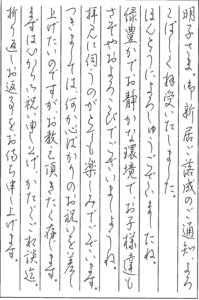 明子さま、御新居ご落成のご通知、よろ
こばしく拝受いたしました。
ほんとうによろしゅうございましたね。
緑豊かでお静かな環境でお子様達も
さぞやおよろこびでございましょうね。
拝見に伺うのがとても楽しみでございます。
つきましては、何か心ばかりのお祝いを差し
上げたいのですがお教え頂きたく存じます。
まずはんから祝い申しそげ、かたがたご相談迄。
折り返しお返事をお待ち申し上げます。